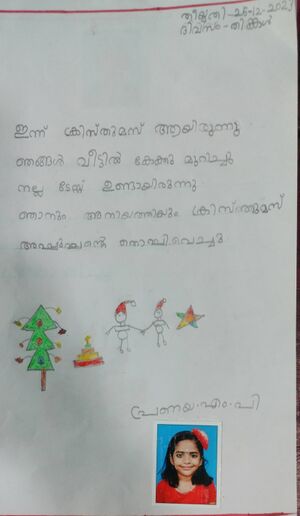 തീയ്യതി-25-12-2023
ദിവസം-തിങ്കൾ
ഇന്ന് ക്രിസ്തുമസ് ആയിരുന്നു
ഞങ്ങൾ വീട്ടിൽ കേക്കു മുറിച്ചു
നല്ല ടേസ്റ്റ് ഉണ്ടായിരുന്നു
ഞാനും അനിയത്തിയും ക്രിസ്തുമസ്
അപ്പൂപ്പന്റെ തൊപ്പി വെച്ചു
പ്രണയ.എം.പി